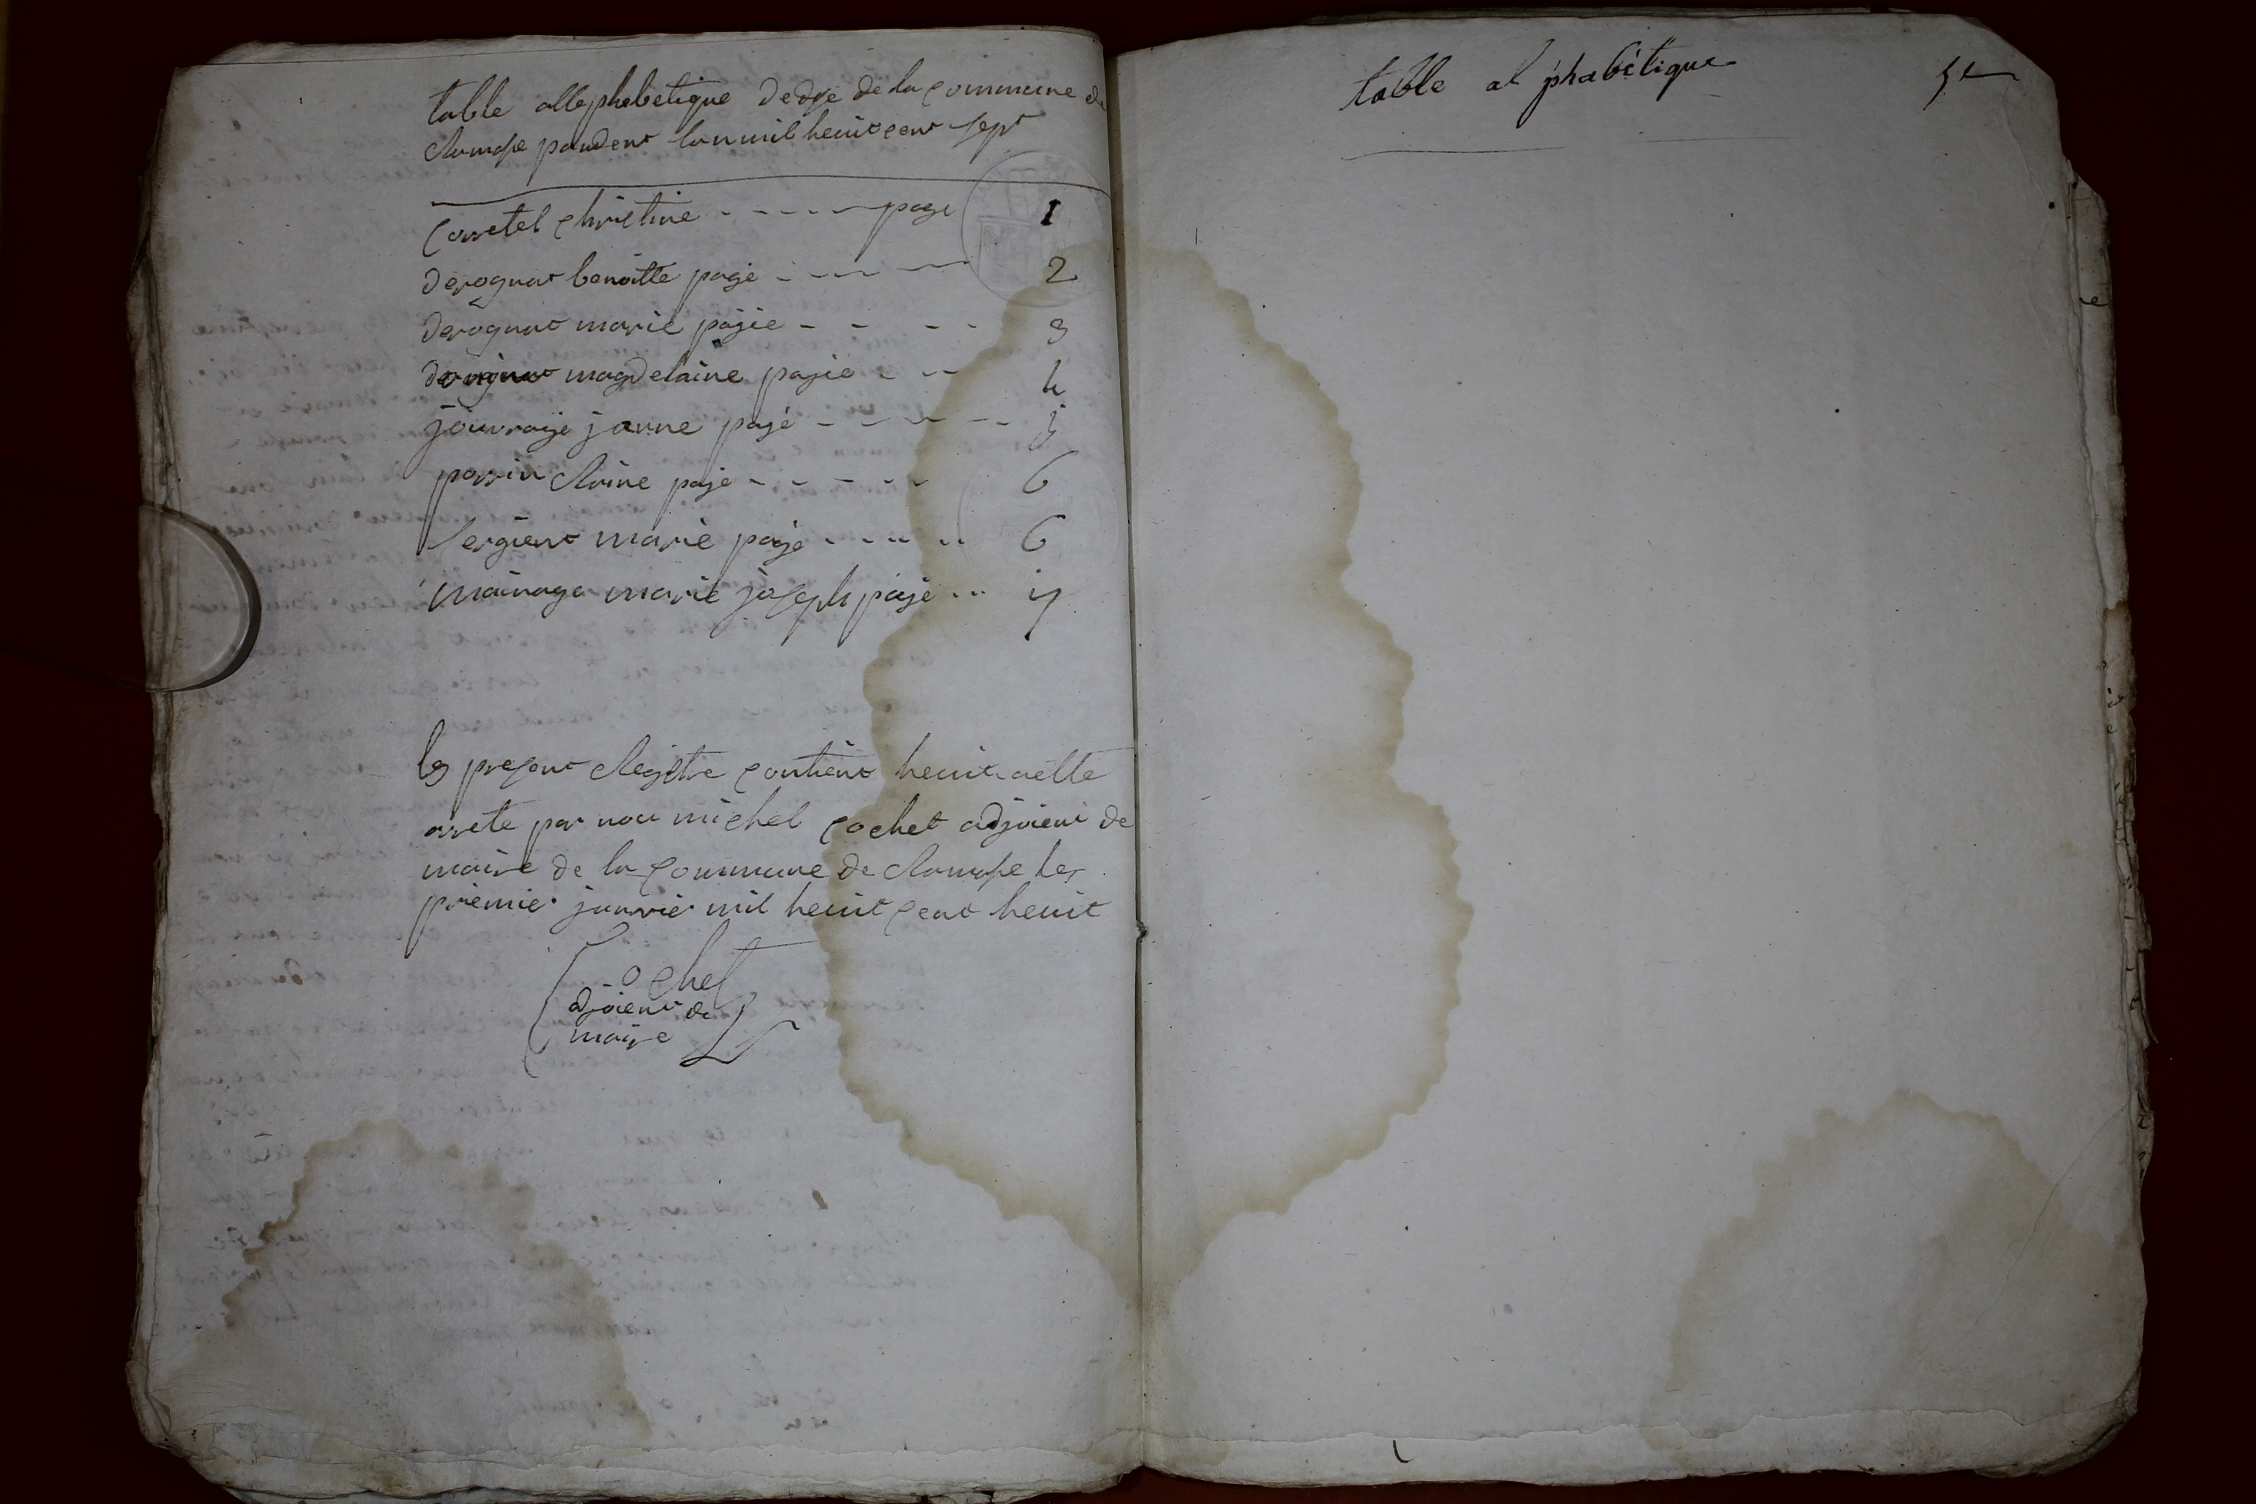 table allephebetique dedse de la commune de
Ramasse pandent lan mil heuit cent sept
Corretel christine - - - - - page 1
derognat benoitte page - - - - 2
derognat marie pagie - - - - 3
derognat magdelaine pagie - - - 4
jouvraje janne page - - - - - 5
perrin claire page - - - - - 6
Sergient marie page - - - - 6
mainage marie joseph page ... 7
le present Registre contient heuit actte
arrete par nou michel cochet adjoient de
maire de la commune de Ramasse le
premier janvier mil heuit cent heuit
Cochet
adjoient de
maire
table alphabétique